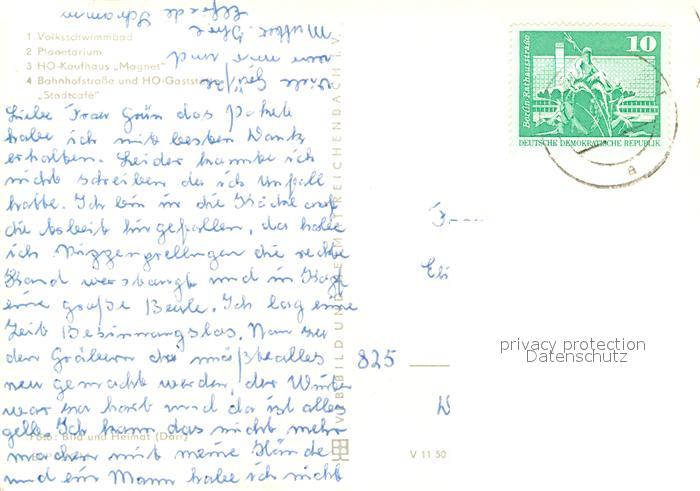 1 Volksschwimmbad
2 Planetarium
3 HO-Kaufhaus „Magnet"
4 Bahnhofstraße und HO-Gaststätte
„Stadtcafé"
Liebe Frau Grün das Paket
habe ich mit besten Dank
erhalten. Leider konnte ich
nicht schreiben da ich Unfall
hatte. Ich bin in die Küche auf
hingefallen, da habe
ich die rechte
Hand verstaucht und in Kopf
eine große Beule. Ich lag eine
Zeit Besinnungslos. Nun zu
den Gräbern da müßte alles
neu gemacht werden, der Winter
war zu hart und da ist alles
gelb. Ich kann das nicht mehr
machen mit meine Hände
und ein Mann habe ich nicht
viele Grüße
von mir und
Mutter. Ihre
Elfriede
Foto: Bild und Heimat (Dörr)
VEB BILD UND HEIMAT REICHENBACH I. V.
V 11 50
825
Berlin, Rathausstraße
10
DEUTSCHE DEMOKRATISCHE REPUBLIK
a
privacy protection
Datenschutz